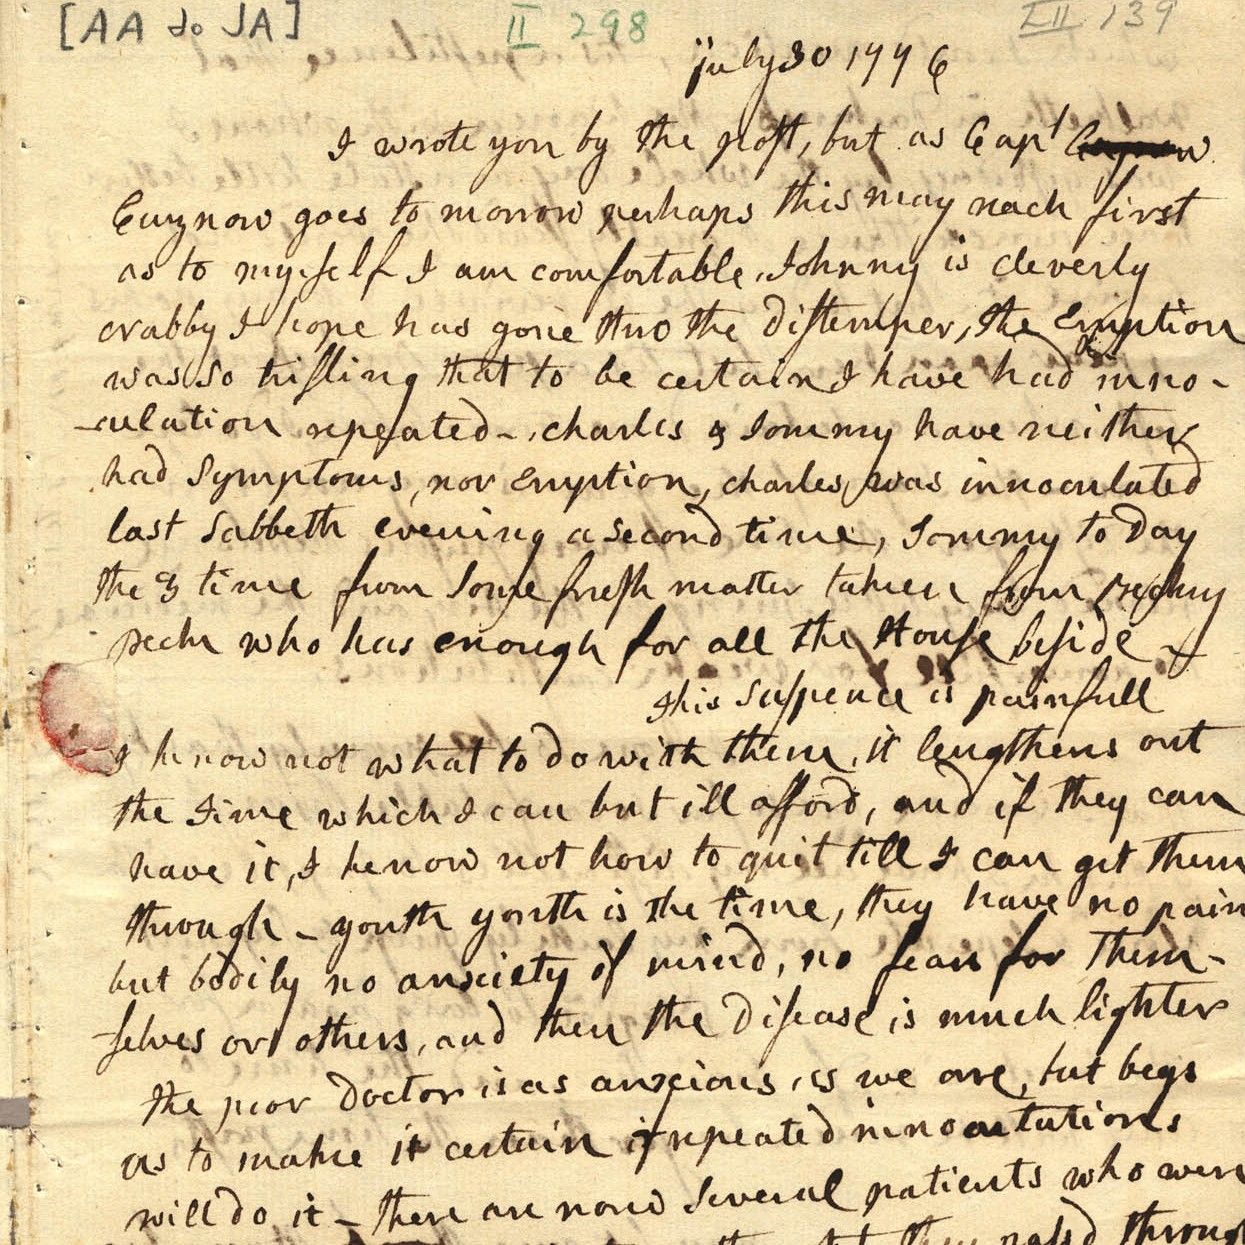 [AA to JA]
II 298
III 139
july 30 1776
I wrote you by the post, but as Capt
Cuznow goes to morrow perhaps this may reach first
as to myself I am comfortable, Johnny is cleverly
Nabby I hope has gone thro the Distemper, the Eruption
was so trifling that to be certain I have had inno-
-culation repeated -, charles & Tommy have neither
had Symptoms, nor Eruption, charles was innoculated
last Sabbeth evening a second time, Tommy to Day
the 3 time from some fresh matter taken from Beckey
Peck who has enough for all the House beside -
This Suspence is painfull
I know not what to do with them, it lengthens out
the Time which I can but ill afford, and if they can
have it, I know not how to quit till I can get them
through - youth youth is the time, they have no pain
but bodily no anxiety of mind, no fears for Them-
-selves or others, and then the Disease is much lighter
the poor Doctor is as anxious as we are, but begs
us to make it certain if repeated innoculations
will do it - there are now Several patients who were